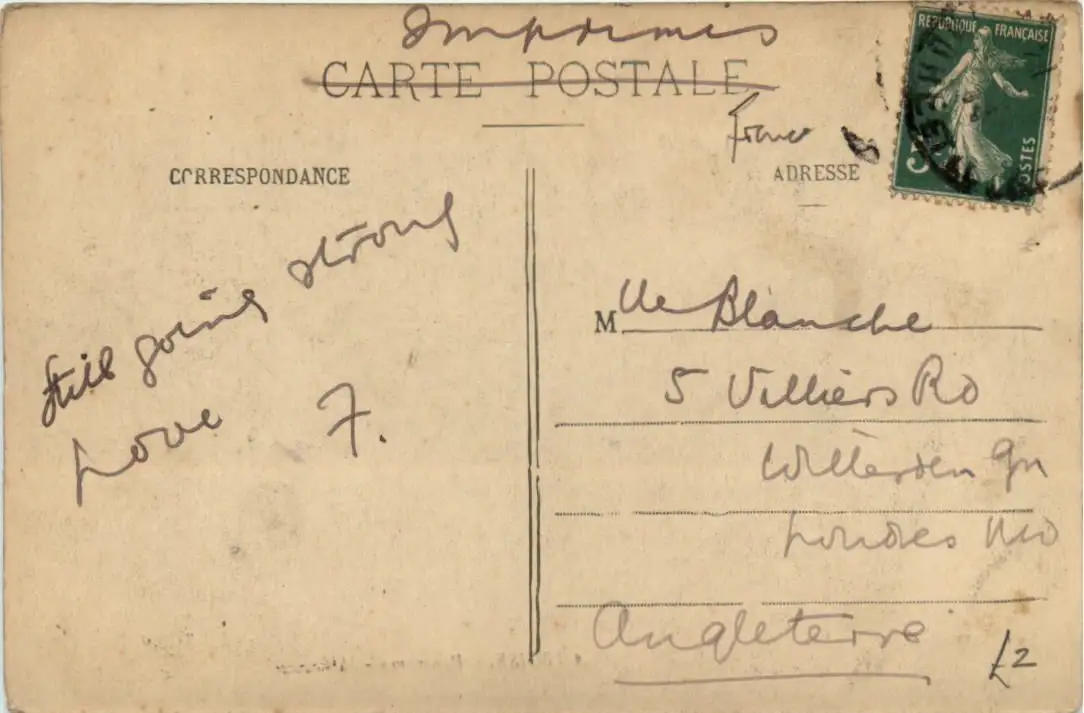 Imprimés
CARTE POSTALE
France
RÉPUBLIQUE FRANÇAISE
5
POSTES
CORRESPONDANCE
ADRESSE
Still going strong
Love F.
Mlle Blanche
5 Villiers Rd
Willesden Gn
Londres NW
Angleterre
£2